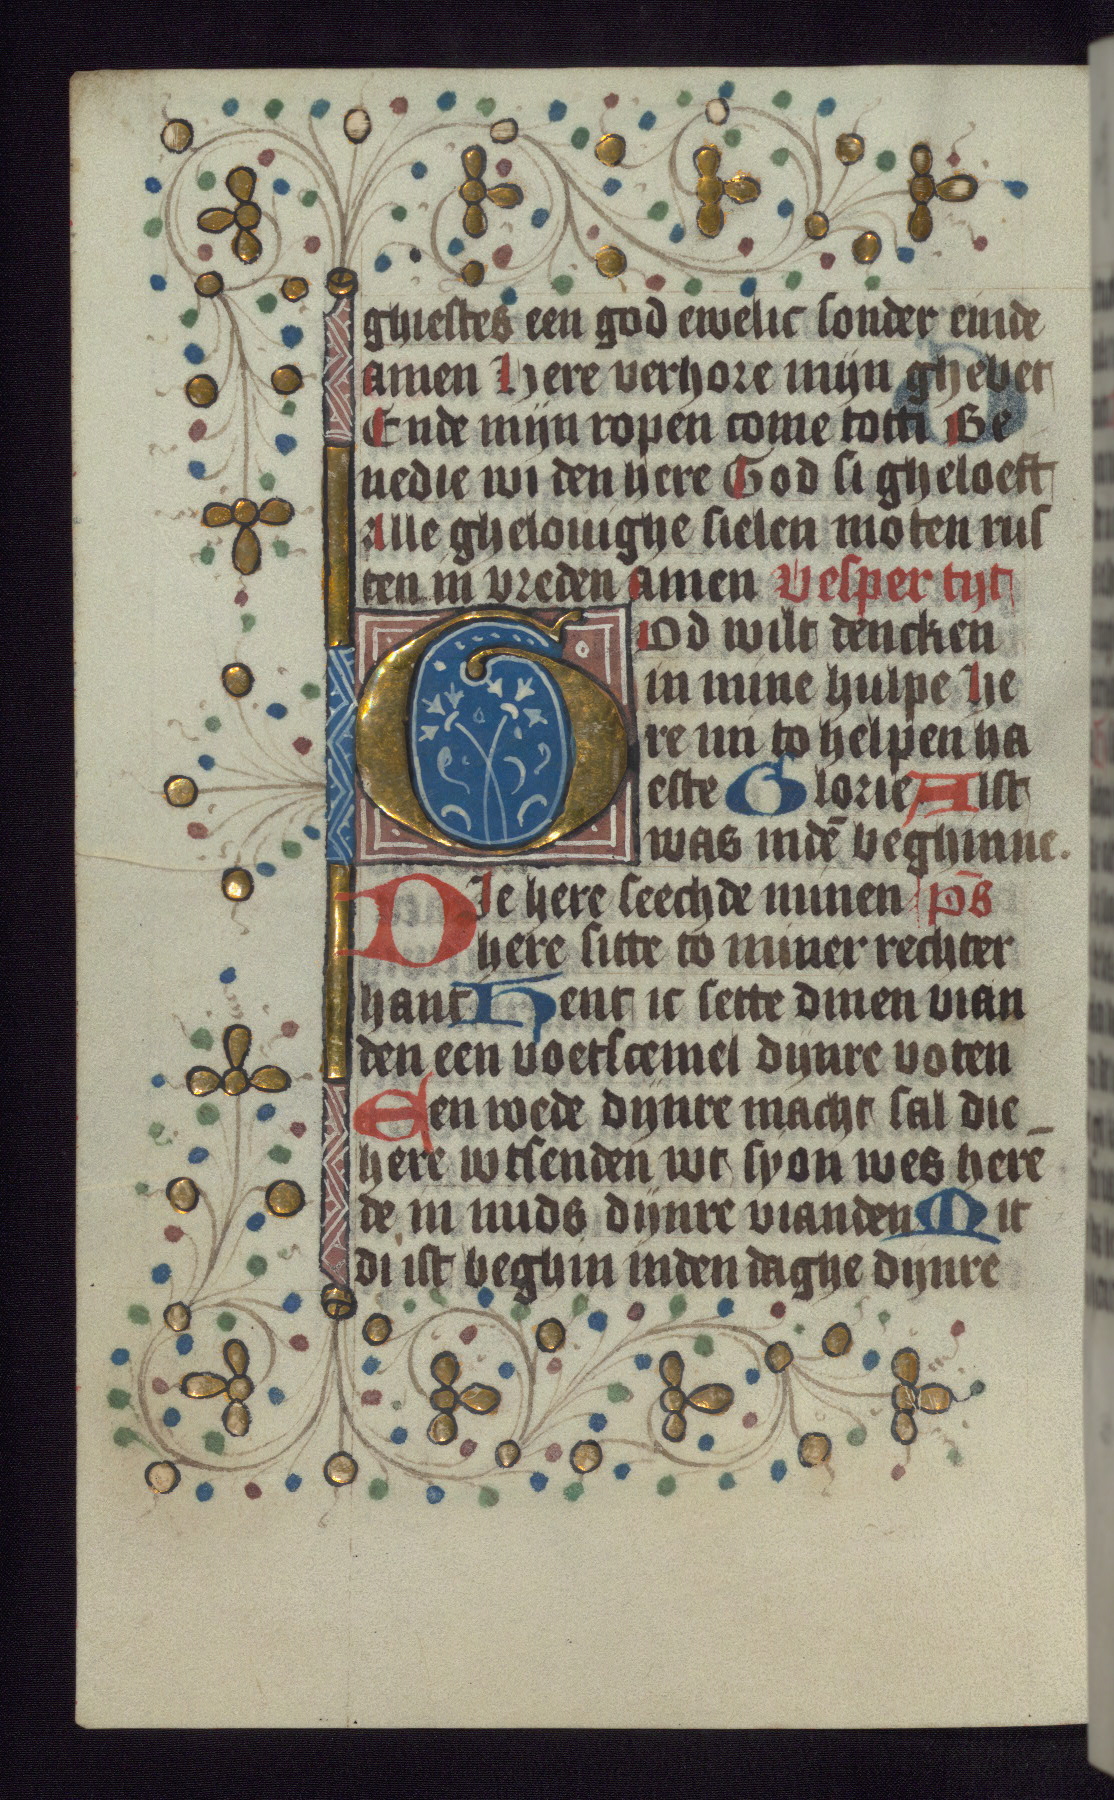 ghiestes een god ewelic sonder einde
amen Here verhore mijn ghebet
Ende mijn ropen come totti Be
nedie wi den here God si gheloeft
Alle ghelouighe sielen moten rus
ten in vreden amen Vesper tijt
God wilt dencken
in mine hulpe He
re mi to helpen ha
este Glorie Alst
was indē beghinne.
Die here seechde minen ps̄
here sitte to miner rechter
hant Hent ic sette dinen vian
den een voetscemel dijnre voten
Een roede dijnre macht sal die
here wtsenden wt syon wes herē
de in mids dijnre vianden Mit
di ist beghin inden daghe dijnre